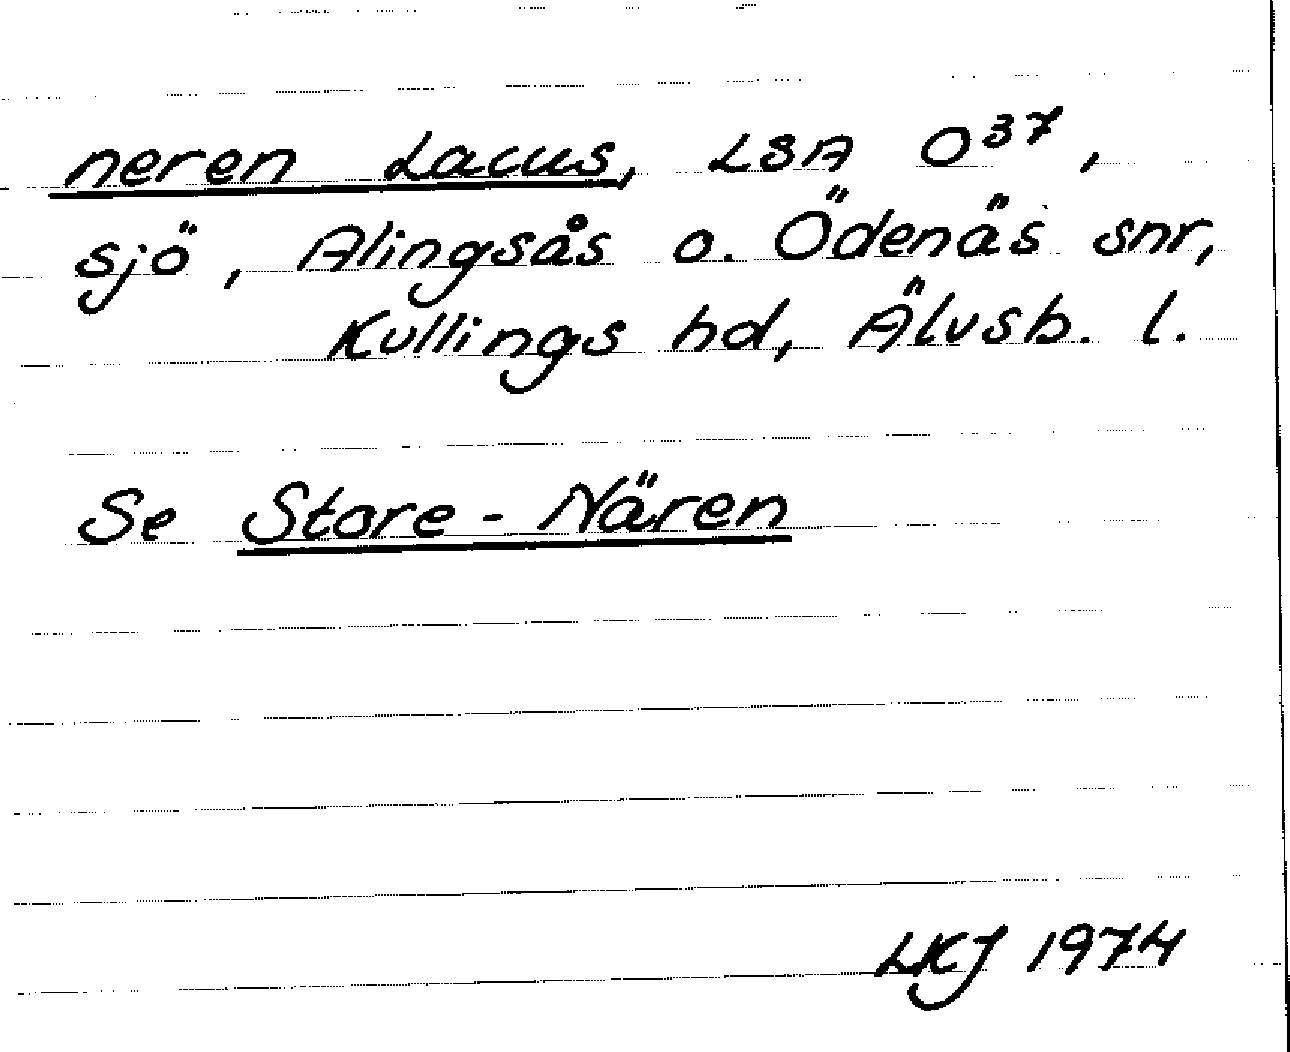 neren Lacus, LSA O³⁷,
sjö, Alingsås o. Ödenäs snr,
Kullings hd, Älvsb. l.
Se Store-Nären
LKJ 1974